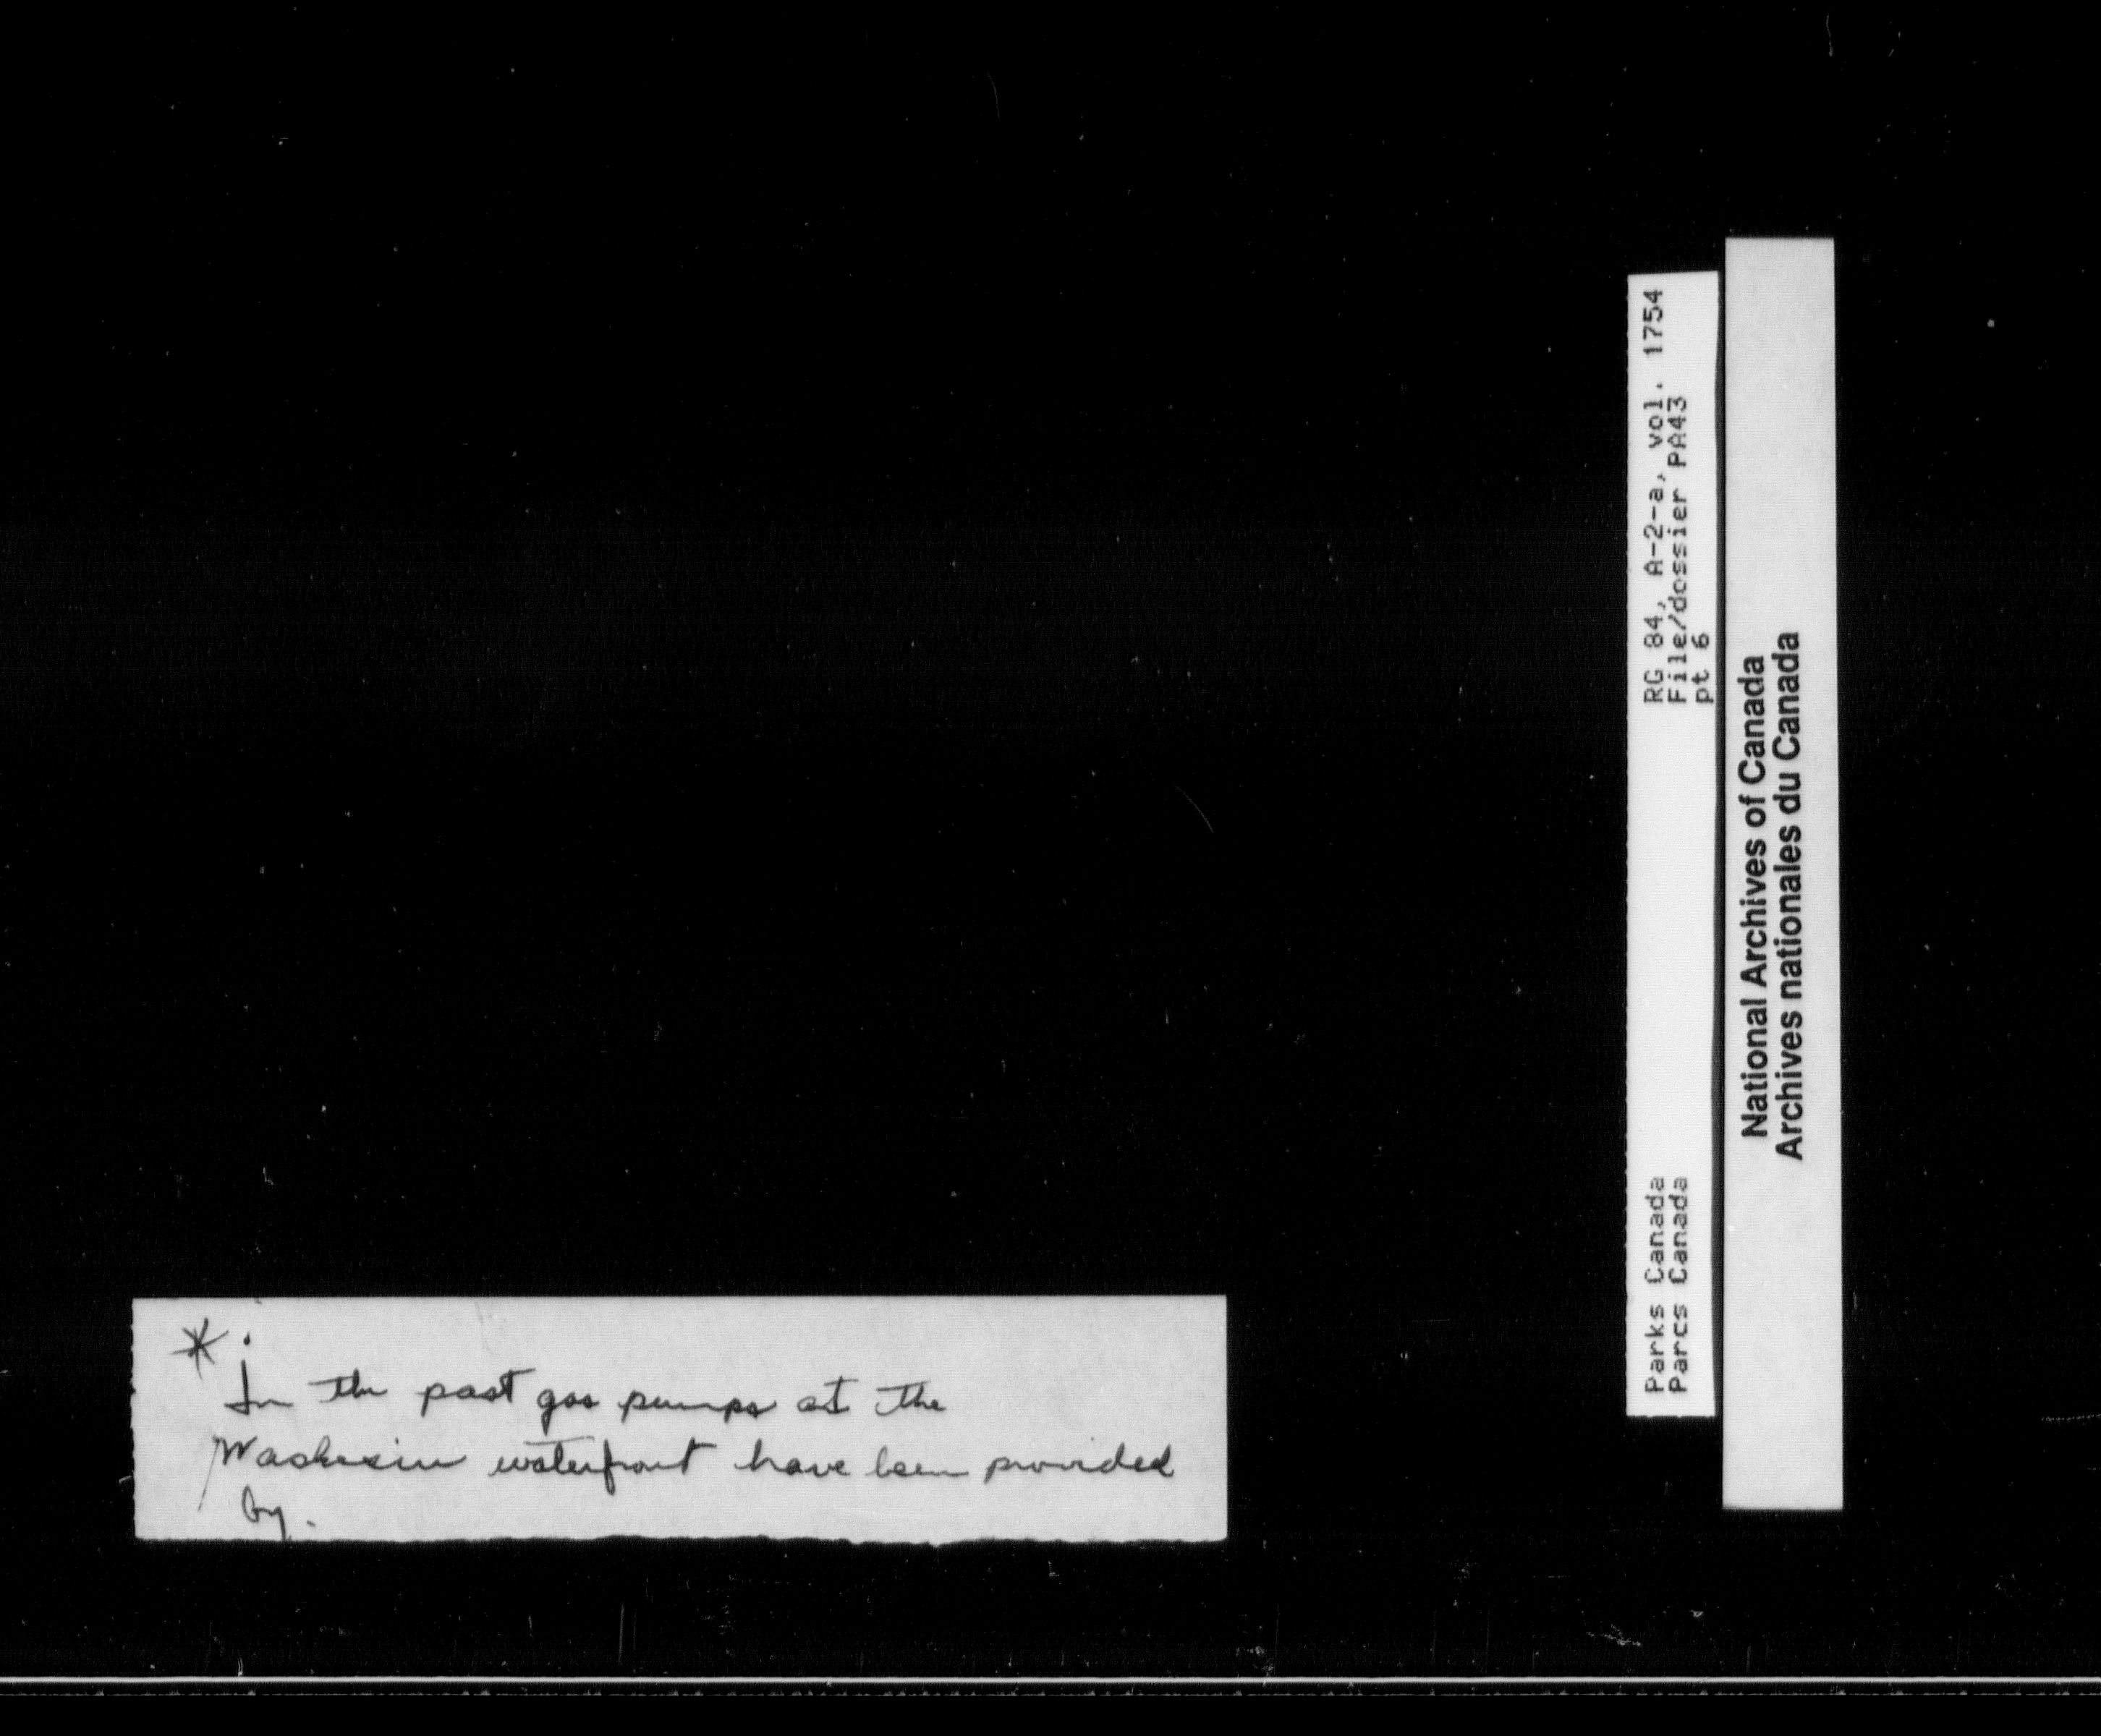 *
In the past gas pumps at the
Waskesiu waterfront have been provided
by.
Parks Canada
Parcs Canada
RG 84, A-2-a, vol. 1754
File/dossier PA43
pt 6
National Archives of Canada
Archives nationales du Canada